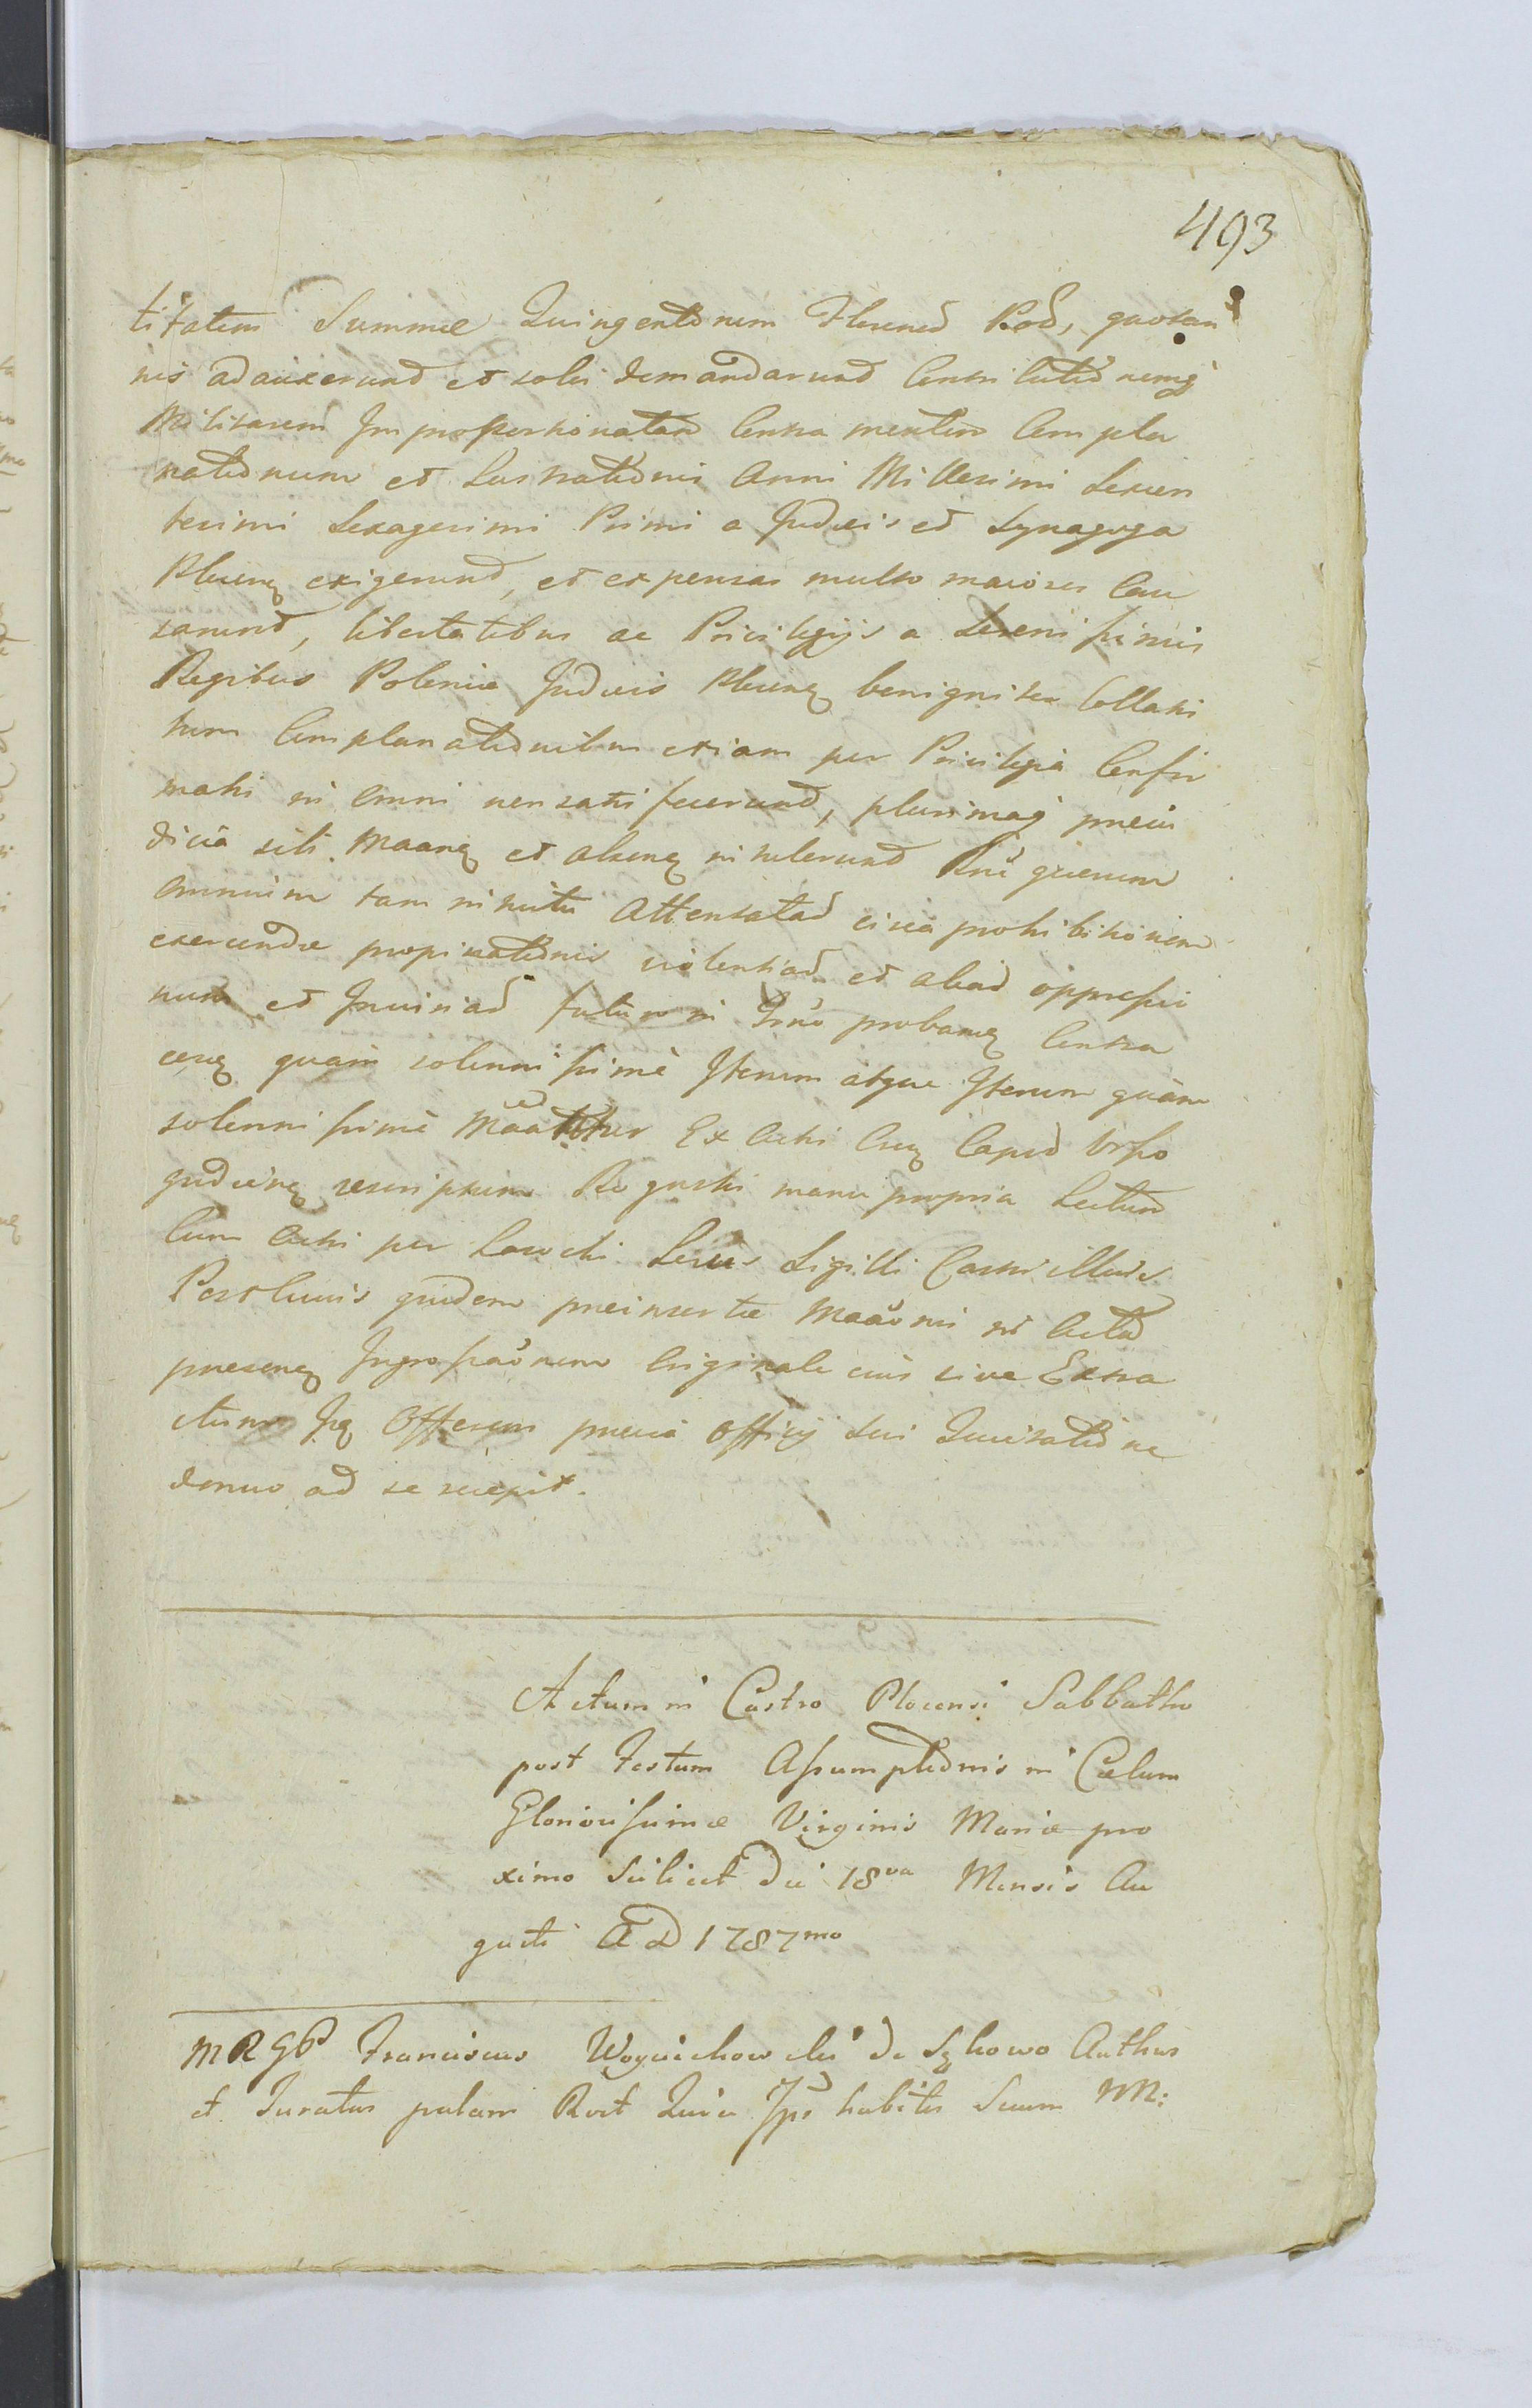 493
titatem Summae Quingentorum Floren Pol, quotan
nis adauxerund et solvi demandarund Contributionemq
Militarem Improportionatam Contra mentem Compla
nationum et Lustrationis Anni Millesimi Sexcen
tesimi Sexagesimi Primi a Judaeis et Synagoga
Plocen exigerund, et expensas multo maiores Cau
sarund, libertatibus ac Privilegijs a Serenissimis
Regibus Poloniae Judaeis Plocen benigniter Collatis
tum Complanationibus etiam per Privilegia Confir
matis in omni non satisfecerund, plurimaq praeiu
dicia sibi Maanq et alienq intulerund
omnium tam inhuito Attentatad circa prohibitionem
exercendae propinationis violentiad et aliad oppressio
num et Iniuriad futuro in Trno probanq Contra
eosq quam solennissime Iterum atque Iterum quam
solennissime Ex Actis Capid
gudienq rescriptum Roguski manu propria Lectum
Cum Actis per Lasocki Locus Sigilli Castri illius
Post cuius quidem praeinsertae Maaonis in Acta
praesenq Ingrossaonem Originale eius sive Extra
ctum Ipq Offerens praevia officij sui Quietatione
denuo ad se recepit.
Actum in Castro Plocensi Sabbatho
post Festum Assumptionis in Caelum
Gloriosissimae Virginis Mariae pro
ximo Scilicet Die 18va Mensis Au
gusti A D 1787mo
MRGD Franciscus Woyciechowski de Authus
et Juratus palam Rcit Quia Ips habitis Suum M: